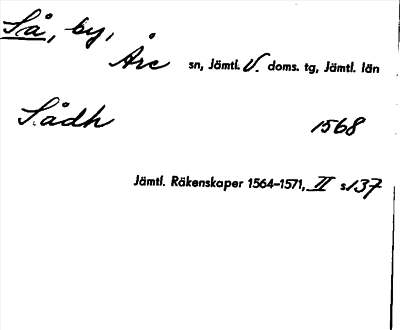 Så, by,
Åre sn, Jämtl. V. doms. tg, Jämtl. län
Sådh 1568
Jämtl. Räkenskaper 1564–1571, II s 137